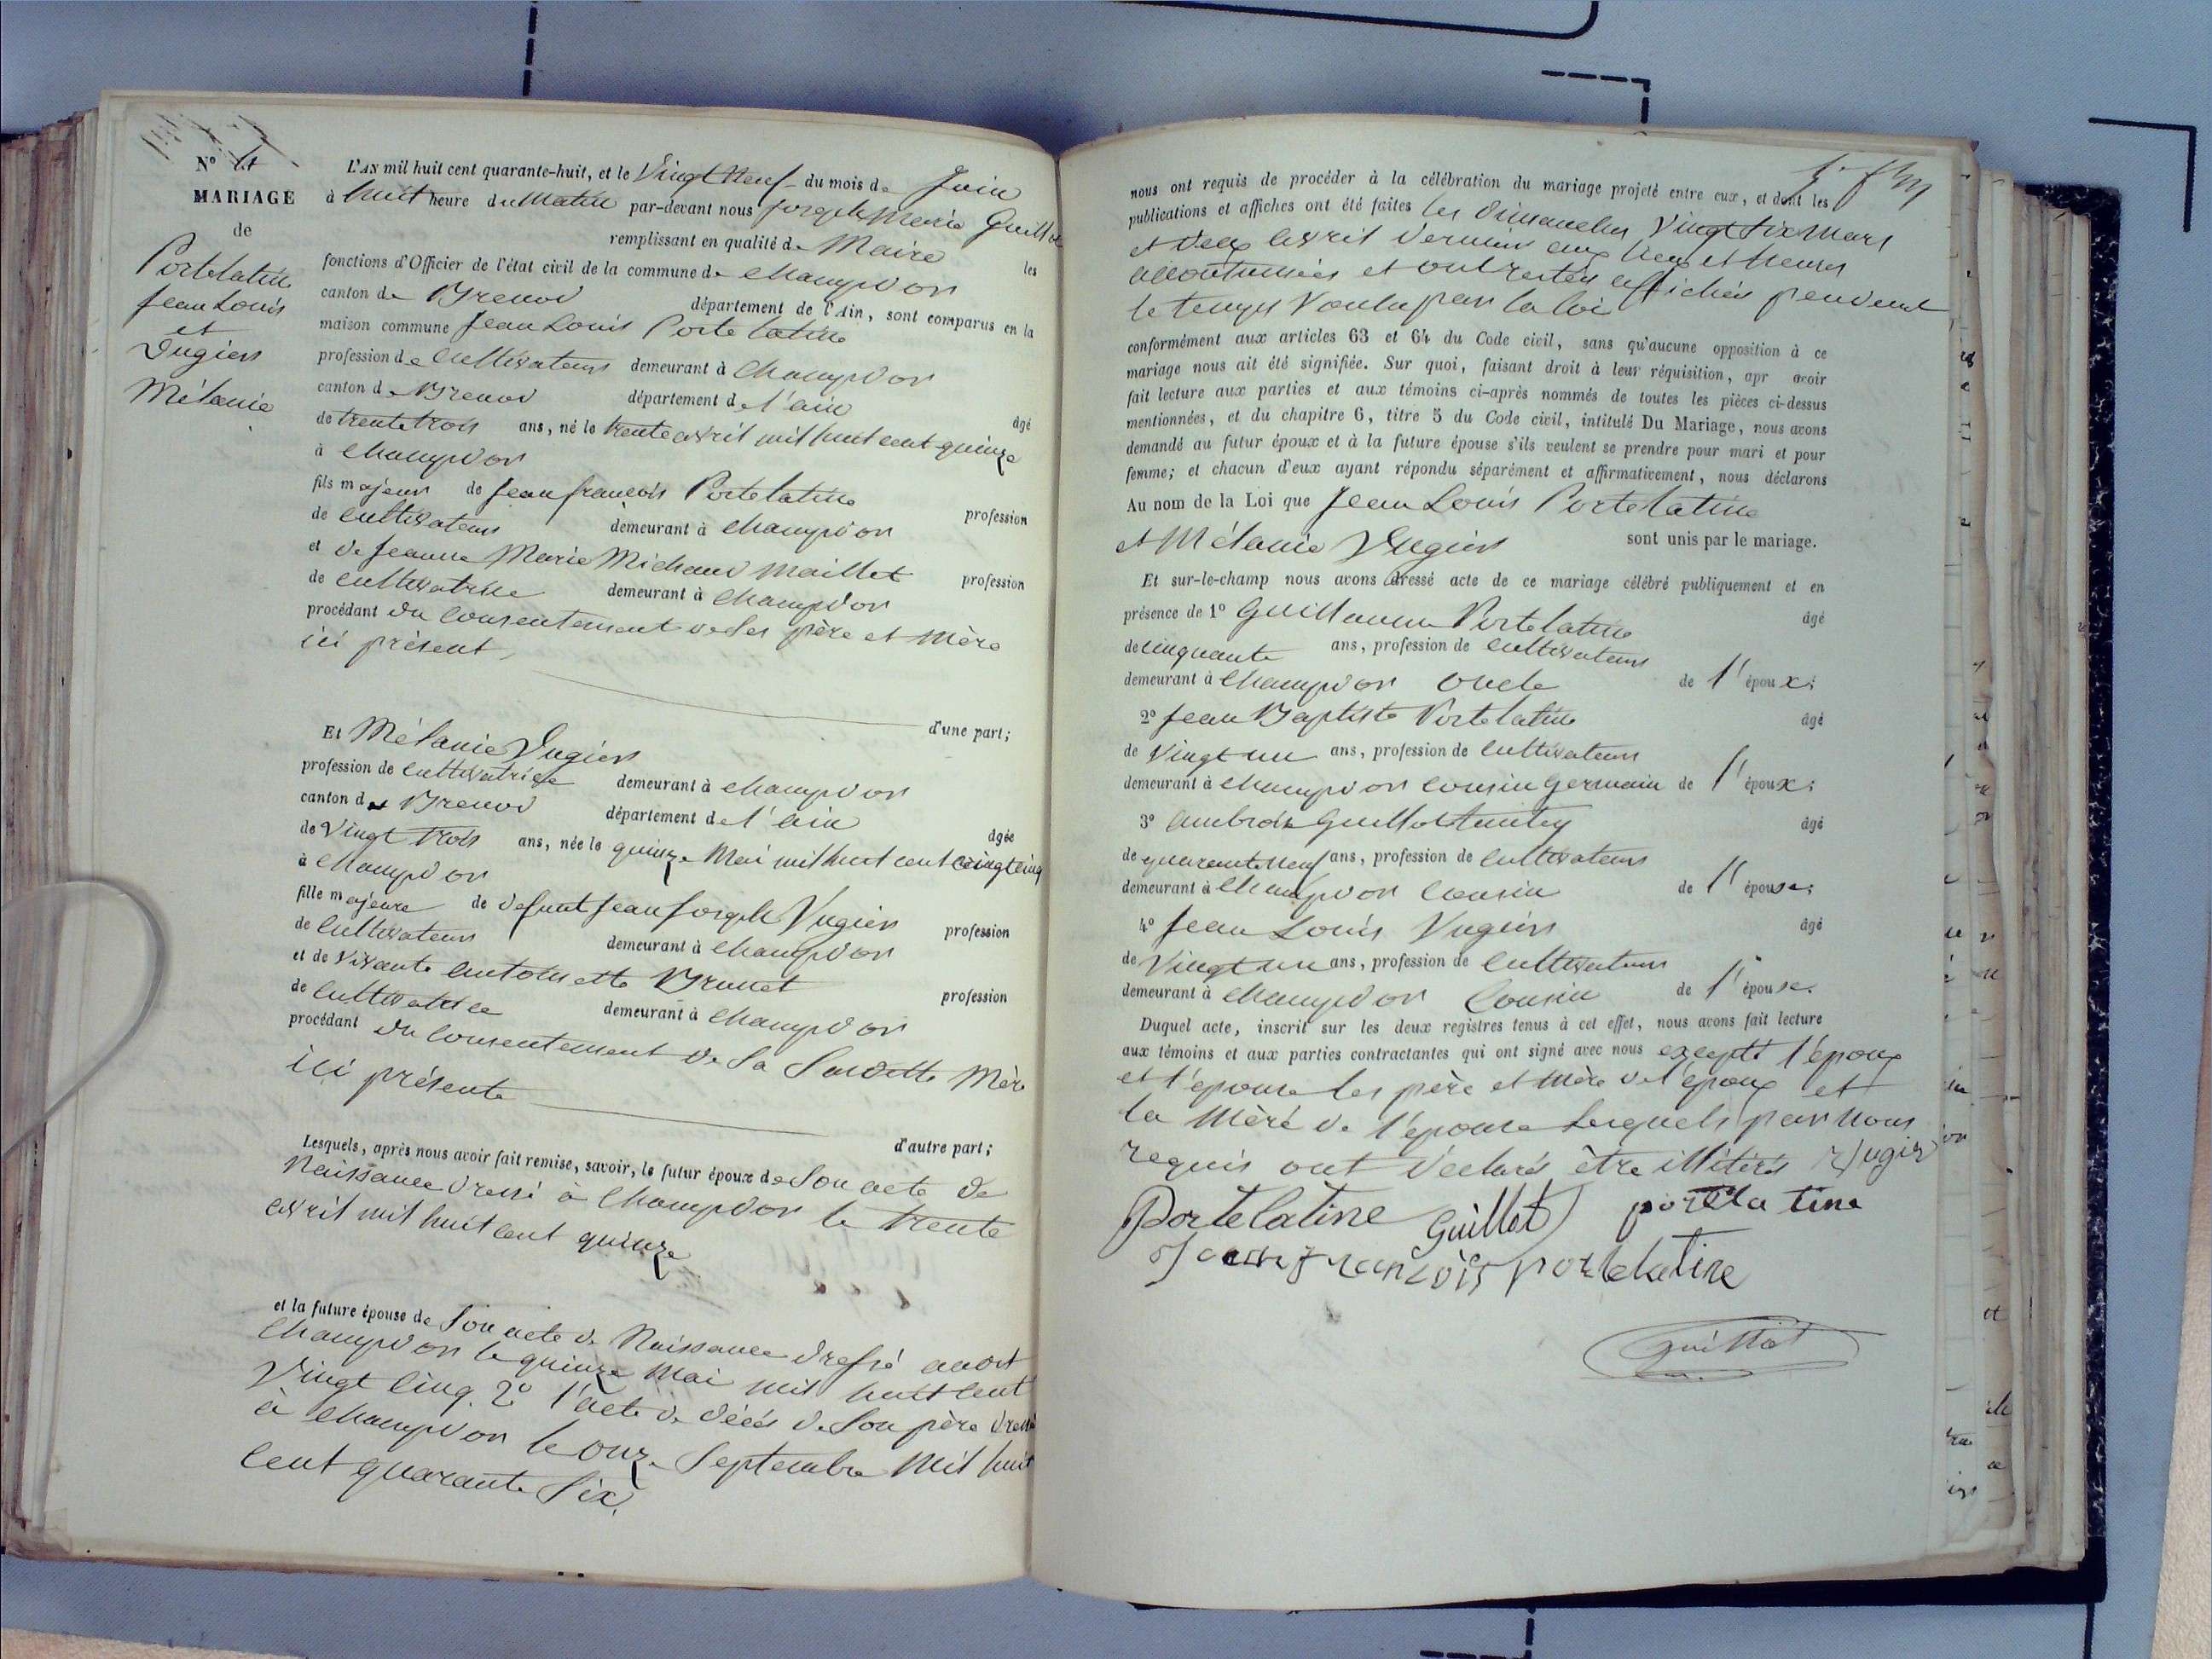 N° 4
MARIAGE
de
Portelatine
Jean Louis
et
Vugier
Mélanie
L'AN mil huit cent quarante-huit, et le Vingt Neuf du mois de Juin
à huit heure du Matin par-devant nous Joseph Marie Guillot
remplissant en qualité de Maire les
fonctions d'Officier de l'état civil de la commune de Champdor
canton de Brenod département de l'Ain, sont comparus en la
maison commune Jean Louis Porte latine
profession de Cultivateur demeurant à Champdor
canton de Brenod département de l'ain âgé
de trente trois ans, né le trente avril mil huit cent quinze
à Champdor
fils majeur de Jean françois Portelatine profession
de cultivateur demeurant à Champdor
et de Jeanne Marie Michaud Maillet profession
de cultivatrice demeurant à Champdor
procédant du Consentement de ses père et Mère
ici présent
d'une part;
Et Mélanie Vugier
profession de cultivatrice demeurant à Champdor
canton de Brenod département de l'ain âgée
de Vingt trois ans, née le quinze Mai mil huit cent vingt cinq
à Champdor
fille majeure de defunt Jean Joseph Vugier profession
de Cultivateur demeurant à Champdor
et de Vivante antoinette Brunet profession
de Cultivatrice demeurant à Champdor
procédant du Consentement de Sa Suditte Mère
ici présente
d'autre part;
Lesquels, après nous avoir fait remise, savoir, le futur époux de Son acte de
Naissance dressé à Champdor le trente
avril mil huit cent quinze
et la future épouse de Son acte de Naissance dressé audit
Champdor le quinze Mai mil huit cent
Vingt Cinq. 2° l'acte de décés de Son père dressé
à Champdor le onze Septembre Mil huit
Cent quarante Six.
nous ont requis de procéder à la célébration du mariage projeté entre eux, et dont les
publications et affiches ont été faites les dimanches Vingt Six Mars
et deux avril dernier aux lieux et heures
accoutumées et ont restées affichées pendent
le temps Voulu par la loi
conformément aux articles 63 et 64 du Code civil, sans qu'aucune opposition à ce
mariage nous ait été signifiée. Sur quoi, faisant droit à leur réquisition, apr avoir
fait lecture aux parties et aux témoins ci-après nommés de toutes les pièces ci-dessus
mentionnées, et du chapitre 6, titre 5 du Code civil, intitulé Du Mariage, nous avons
demandé au futur époux et à la future épouse s'ils veulent se prendre pour mari et pour
femme; et chacun d'eux ayant répondu séparément et affirmativement, nous déclarons
Au nom de la Loi que Jean Louis Portelatine
et Mélanie Vugier sont unis par le mariage.
Et sur-le-champ nous avons dressé acte de ce mariage célébré publiquement et en
présence de 1° Guillaume Portelatine âgé
de cinquante ans, profession de cultivateur
demeurant à Champdor oncle de l'époux;
2° Jean Baptiste Portelatine âgé
de Vingt un ans, profession de Cultivateur
demeurant à Champdor cousin germain de l'époux;
3° ambroise Guillot âgé
de quarante neuf ans, profession de Cultivateur
demeurant à Champdor Cousin de l'épouse;
4° Jean Louis Vugier âgé
de Vingt un ans, profession de Cultivateur
demeurant à Champdor Cousin de l'épouse.
Duquel acte, inscrit sur les deux registres tenus à cet effet, nous avons fait lecture
aux témoins et aux parties contractantes qui ont signé avec nous excepté l'époux
et l'epouse les père et Mère de l'époux et
la Mère de l'epouse Lesquels par Nous
requis ont déclarés être illitérés Vugier
Portelatine Guillot portelatine
Jean françois portelatine
Guillot